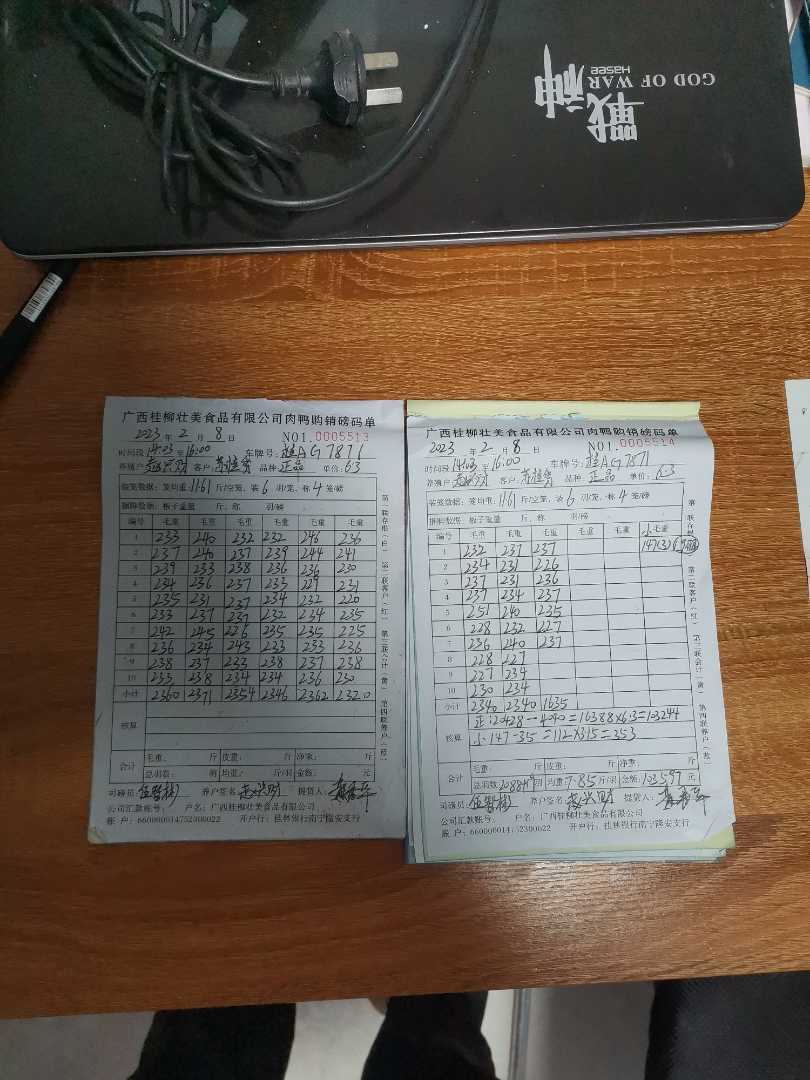 戰神
Hasee
GOD OF WAR
广西桂柳壮美食品有限公司肉鸭购销磅码单
2023 年 2 月 8 日 NO1.0005513
时间段 14:03 至 16:00 车牌号: 桂AG7871
养殖户 客户: 品种: 正品 单价: 6.3
装笼数据: 笼均重: 11.61 斤/空笼、装 6 羽/笼、称 4 笼/磅
捆脚数据: 板子重量 斤、称 羽/磅
编号 毛重 毛重 毛重 毛重 毛重 毛重
1 233 240 232 232 246 236
2 237 240 237 239 244 241
3 239 233 238 236 236 230
4 234 236 237 233 229 231
5 235 231 237 234 232 220
6 233 237 237 232 234 235
7 242 245 226 235 235 225
8 236 234 243 233 233 236
9 238 237 233 238 237 238
10 233 238 234 234 236 230
小计 2360 2371 2354 2346 2362 2320
核算
合计 毛重: 斤 皮重: 斤 净重: 斤
总羽数: 羽 均重: 斤/羽 金额: 元
司磅员: 养户签名: 提货人:
公司汇款账号: 户名: 广西桂柳壮美食品有限公司
账户: 660000014752300022 开户行: 桂林银行南宁隆安支行
第一联存根(白) 第二联客户(红) 第三联会计(黄) 第四联养户(蓝)
广西桂柳壮美食品有限公司肉鸭购销磅码单
2023 年 2 月 8 日 NO1.0005514
时间段 14:03 至 16:00 车牌号: 桂AG7871
养殖户 客户: 品种: 正品 单价: 6.3
装笼数据: 笼均重: 11.61 斤/空笼、装 6 羽/笼、称 4 笼/磅
捆脚数据: 板子重量 斤、称 羽/磅
编号 毛重 毛重 毛重 毛重 毛重 小毛重
1 232 237 237 147(3)
2 234 231 226
3 237 231 236
4 237 234 237
5 251 240 235
6 228 232 227
7 236 240 237
8 228 227
9 227 234
10 230 234
小计 2340 2340 1635
核算 正:20428-4040=16388×6.3=103244
小 147-35=112×3.15=353
合计 毛重: 斤 皮重: 斤 净重: 斤
总羽数: 羽 均重: 7.85 斤/羽 金额: 103597 元
司磅员: 养户签名: 提货人:
公司汇款账号: 户名: 广西桂柳壮美食品有限公司
账户: 660000014752300022 开户行: 桂林银行南宁隆安支行
第一联存根(白) 第二联客户(红) 第三联会计(黄) 第四联养户(蓝)